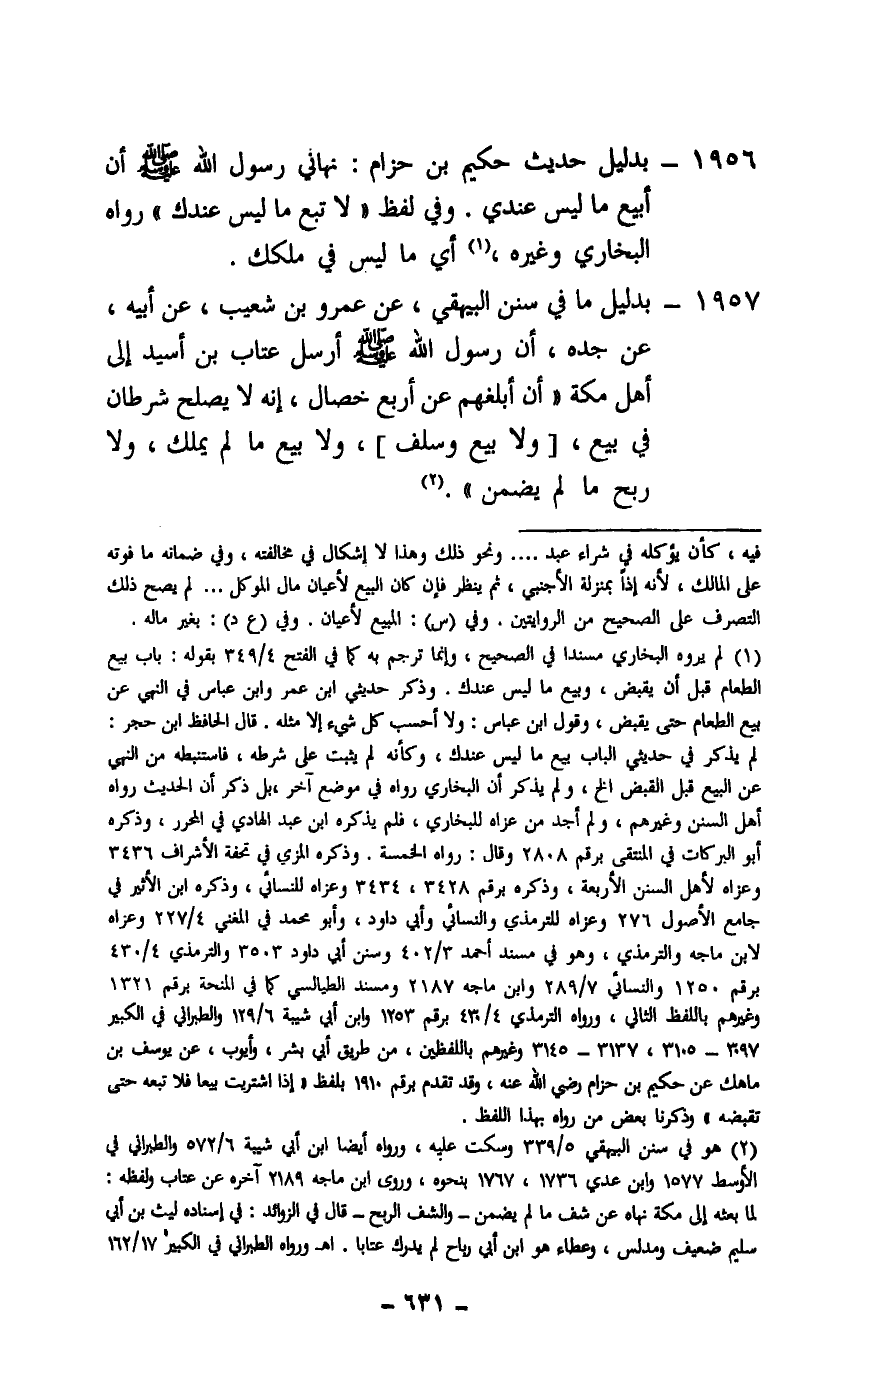 ١٩٥٦ – بدليل حديث حكيم بن حزام : نهاني رسول الله ﷺ أن
أبيع ما ليس عندي . وفي لفظ « لا تبع ما ليس عندك » رواه
البخاري وغيره ،(١) أي ما ليس في ملكك .
١٩٥٧ – بدليل ما في سنن البيهقي ، عن عمرو بن شعيب ، عن أبيه ،
عن جده ، أن رسول الله ﷺ أرسل عتاب بن أسيد إلى
أهل مكة « أن أبلغهم عن أربع خصال ، إنه لا يصلح شرطان
في بيع ، [ ولا بيع وسلف ] ، ولا بيع ما لم يملك ، ولا
ربح ما لم يضمن » .(٢)
فيه ، كأن يؤكله في شراء عبد .... ونحو ذلك وهذا لا إشكال في مخالفته ، وفي ضمانه ما فوته
على المالك ، لأنه إذاً بمنزلة الأجنبي ، ثم ينظر فإن كان البيع لأعيان مال الموكل ... لم يصح ذلك
التصرف على الصحيح من الروايتين . وفي (س) : المبيع لأعيان . وفي (ع د) : بغير ماله .
(١) لم يروه البخاري مسندا في الصحيح ، وإنما ترجم به كما في الفتح ٣٤٩/٤ بقوله : باب بيع
الطعام قبل أن يقبض ، وبيع ما ليس عندك . وذكر حديثي ابن عمر وابن عباس في النهي عن
بيع الطعام حتى يقبض ، وقول ابن عباس : ولا أحسب كل شيء إلا مثله . قال الحافظ ابن حجر :
لم يذكر في حديثي الباب بيع ما ليس عندك ، وكأنه لم يثبت على شرطه ، فاستنبطه من النهي
عن البيع قبل القبض الخ ، ولم يذكر أن البخاري رواه في موضع آخر ،بل ذكر أن الحديث رواه
أهل السنن وغيرهم ، ولم أجد من عزاه للبخاري ، فلم يذكره ابن عبد الهادي في المحرر ، وذكره
أبو البركات في المنتقى برقم ٢٨٠٨ وقال : رواه الخمسة . وذكره المزي في تحفة الأشراف ٣٤٣٦
وعزاه لأهل السنن الأربعة ، وذكره برقم ٣٤٢٨ ، ٣٤٣٤ وعزاه للنسائي ، وذكره ابن الأثير في
جامع الأصول ٢٧٦ وعزاه للترمذي والنسائي وأبي داود ، وأبو محمد في المغني ٢٢٧/٤ وعزاه
لابن ماجه والترمذي ، وهو في مسند أحمد ٤٠٢/٣ وسنن أبي داود ٣٥٠٣ والترمذي ٤٣٠/٤
برقم ١٢٥٠ والنسائي ٢٨٩/٧ وابن ماجه ٢١٨٧ ومسند الطيالسي كما في المنحة برقم ١٣٢١
وغيرهم باللفظ الثاني ، ورواه الترمذي ٤٣٠/٤ برقم ١٢٥٣ وابن أبي شيبة ١٢٩/٦ والطبراني في الكبير
٣٠٩٧ – ٣١٠٥ ، ٣١٣٧ – ٣١٤٥ وغيرهم باللفظين ، من طريق أبي بشر ، وأيوب ، عن يوسف بن
ماهك عن حكيم بن حزام رضي الله عنه ، وقد تقدم برقم ١٩١٠ بلفظ « إذا اشتريت بيعا فلا تبعه حتى
تقبضه » وذكرنا بعض من رواه بهذا اللفظ .
(٢) هو في سنن البيهقي ٣٣٩/٥ وسكت عليه ، ورواه أيضا ابن أبي شيبة ٥٧٢/٦ والطبراني في
الأوسط ١٥٧٧ وابن عدي ١٧٣٦ ، ١٧٦٧ بنحوه ، وروى ابن ماجه ٢١٨٩ آخره عن عتاب ولفظه :
لما بعثه إلى مكة نهاه عن شف ما لم يضمن – والشف الربح – قال في الزوائد : في إسناده ليث بن أبي
سليم ضعيف ومدلس ، وعطاء هو ابن أبي رباح لم يدرك عتابا . اهـ ورواه الطبراني في الكبير ١٦٢/١٧
– ٦٣١ –